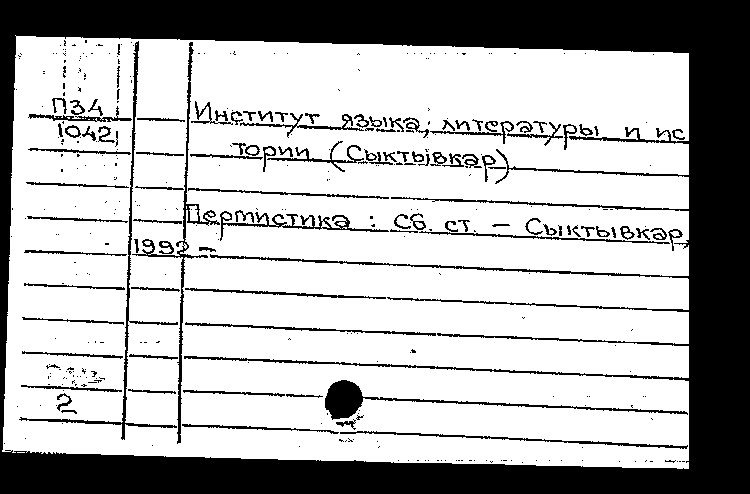 П34
1042
Институт языка, литературы и ис
тории (Сыктывкар)
Пермистика : Сб. ст. – Сыктывкар,
1992 –
2